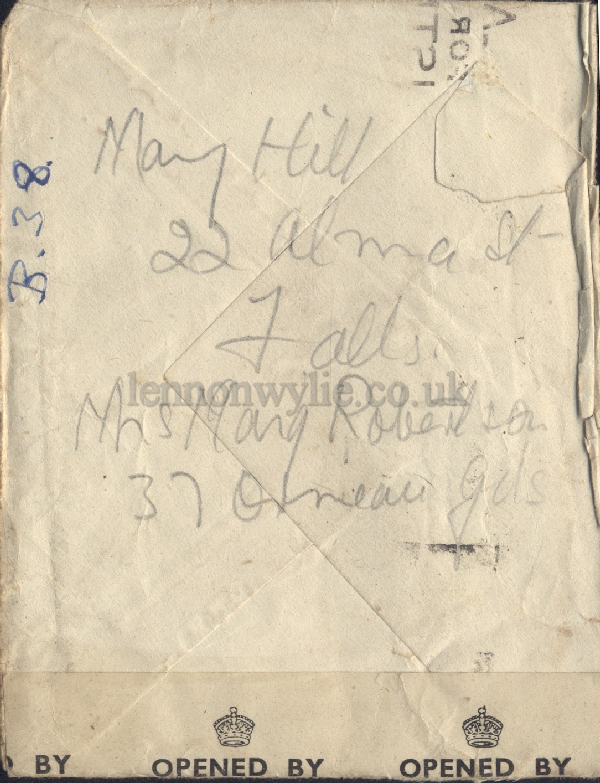 B.38.
Mary Hill
22 Alma St
Falls.
lennonwylie.co.uk
Mrs Mary Robertson
37 Ormeau Gds
BY OPENED BY OPENED BY